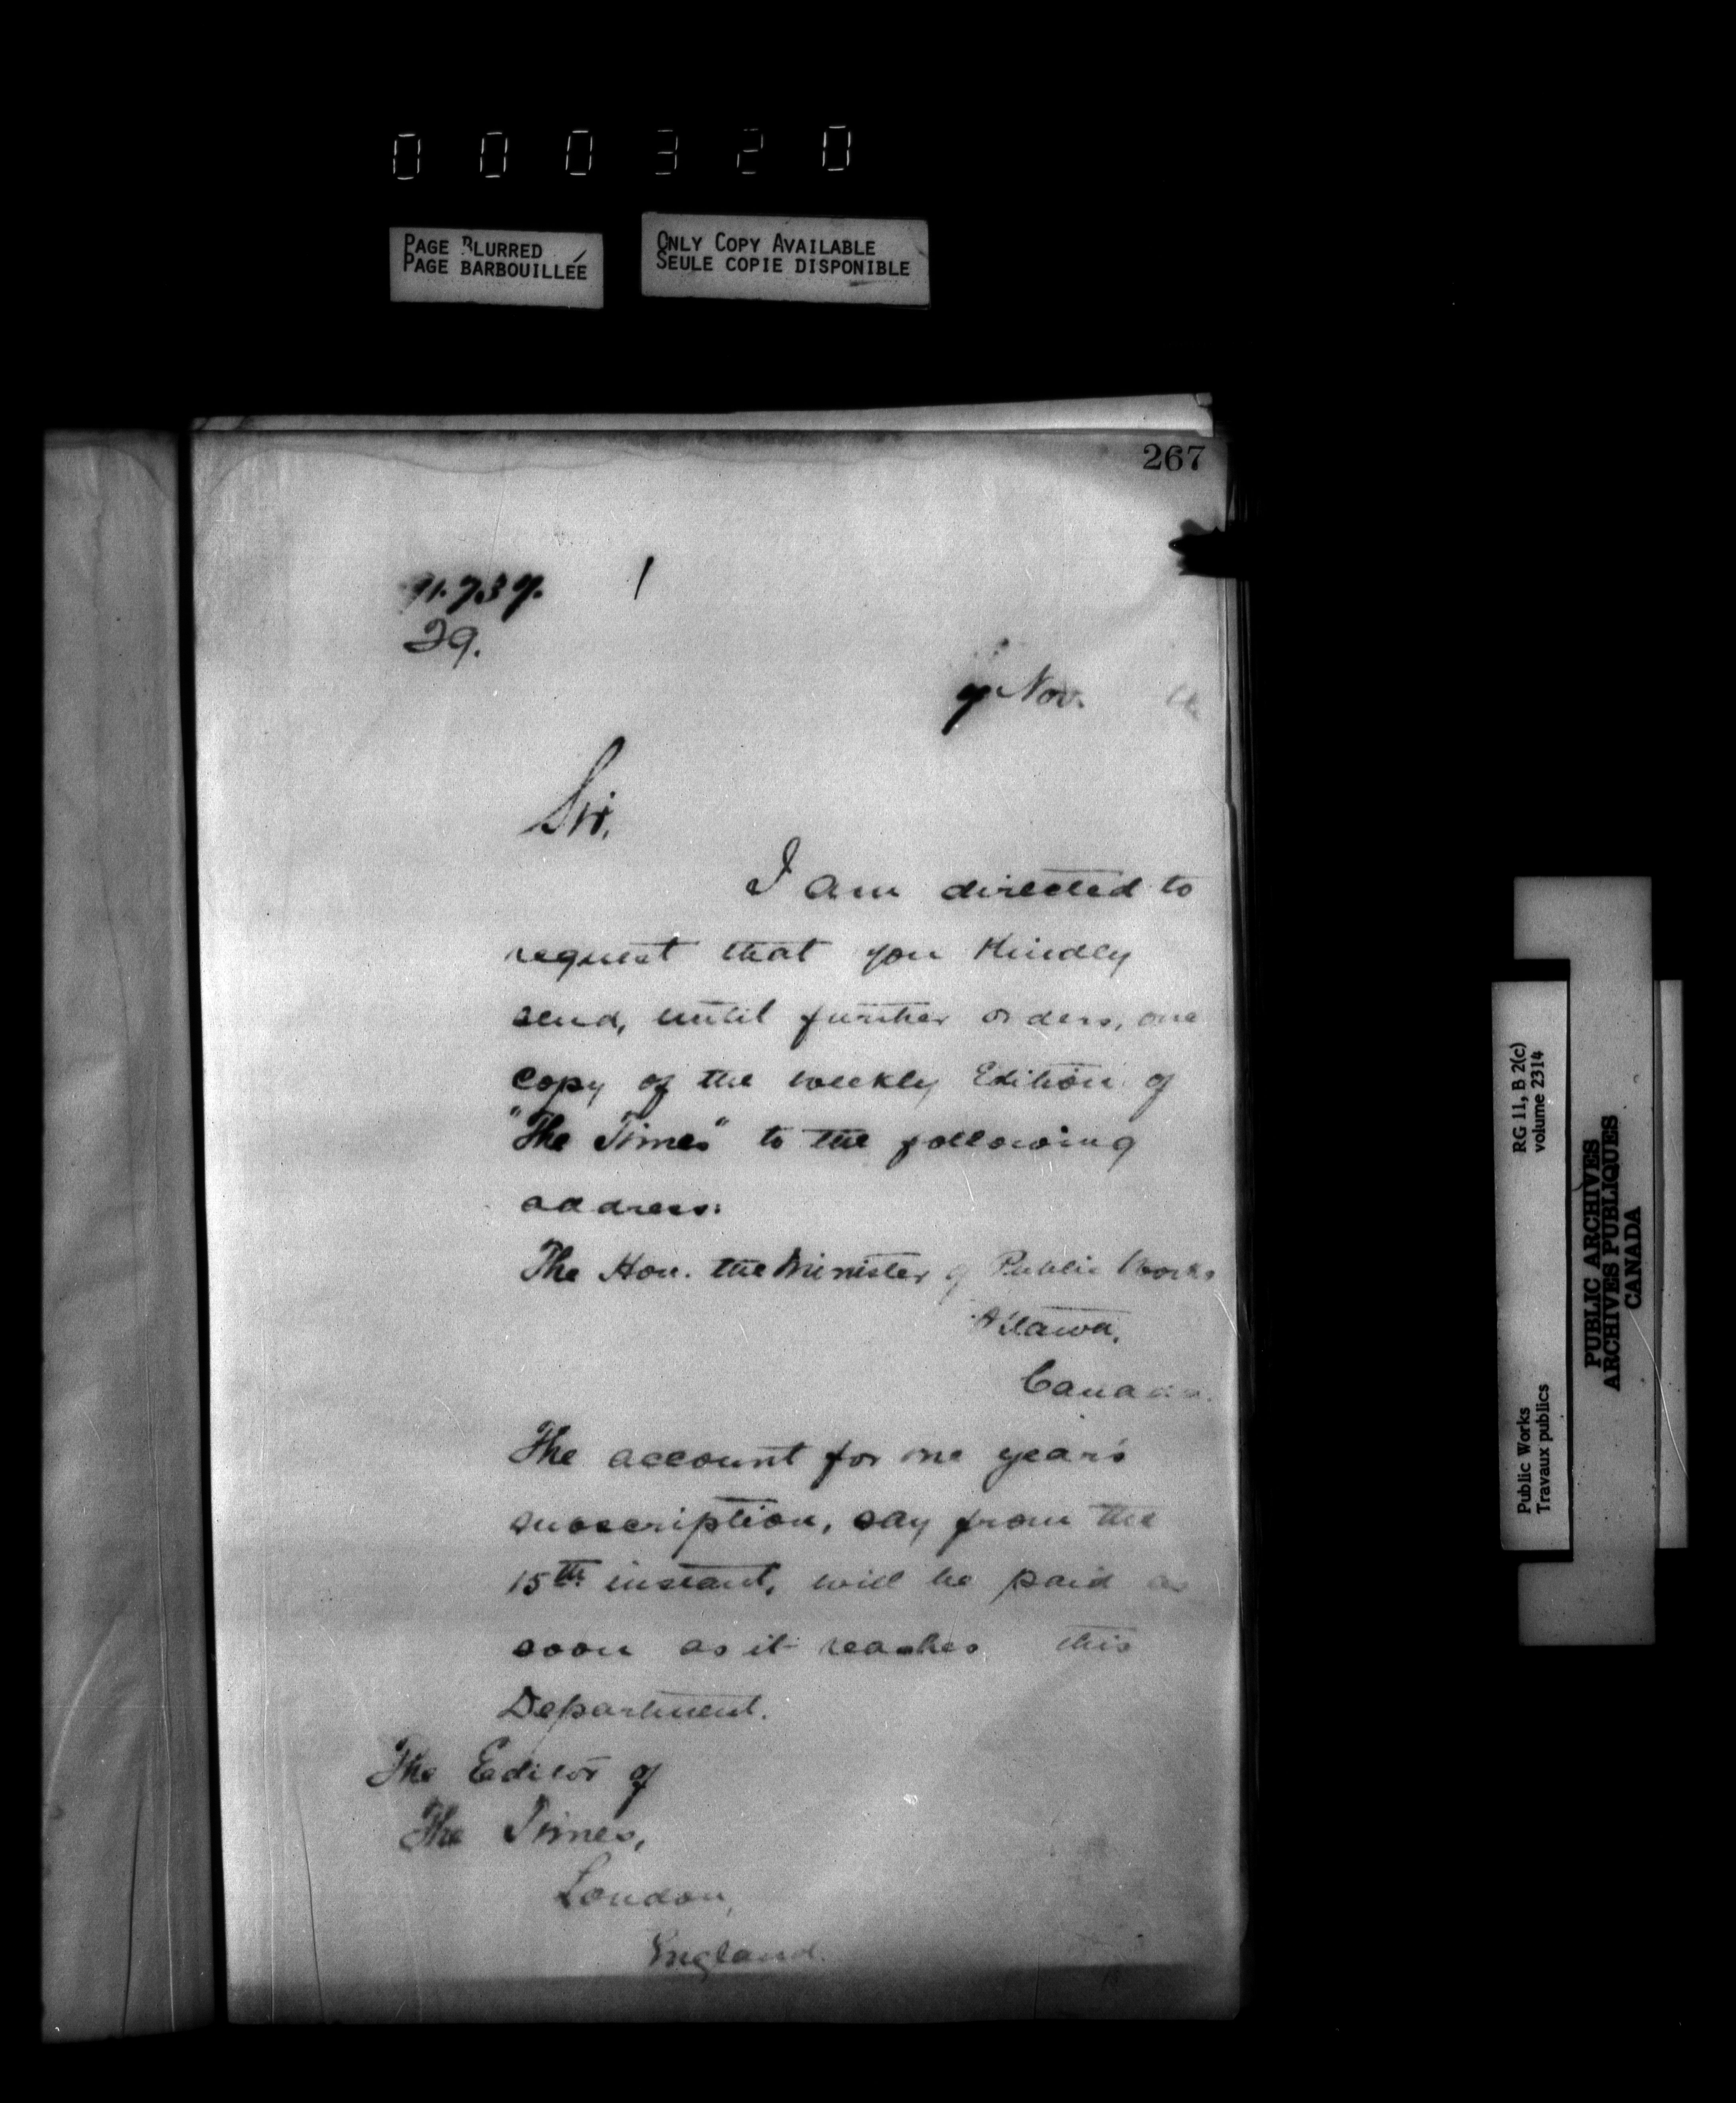 000320
PAGE BLURRED
PAGE BARBOUILLÉE
ONLY COPY AVAILABLE
SEULE COPIE DISPONIBLE
267
29.
Nov.
Sir,
I am directed to
request that you Kindly
send, until further orders, one
copy of the weekly Edition of
"The Times" to the following
address:
The Hon. the Minister of Public Works
Ottawa,
Canada.
The account for one year's
subscription, say from the
15th instant, will be paid as
soon as it reaches this
Department.
The Editor of
The Times,
London,
England.
RG 11, B 2(c)
volume 2314
Public Works
Travaux publics
PUBLIC ARCHIVES
ARCHIVES PUBLIQUES
CANADA